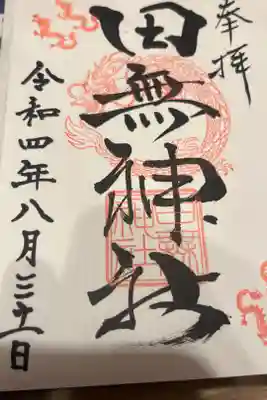 奉拝
田無神社
令和四年八月三十一日